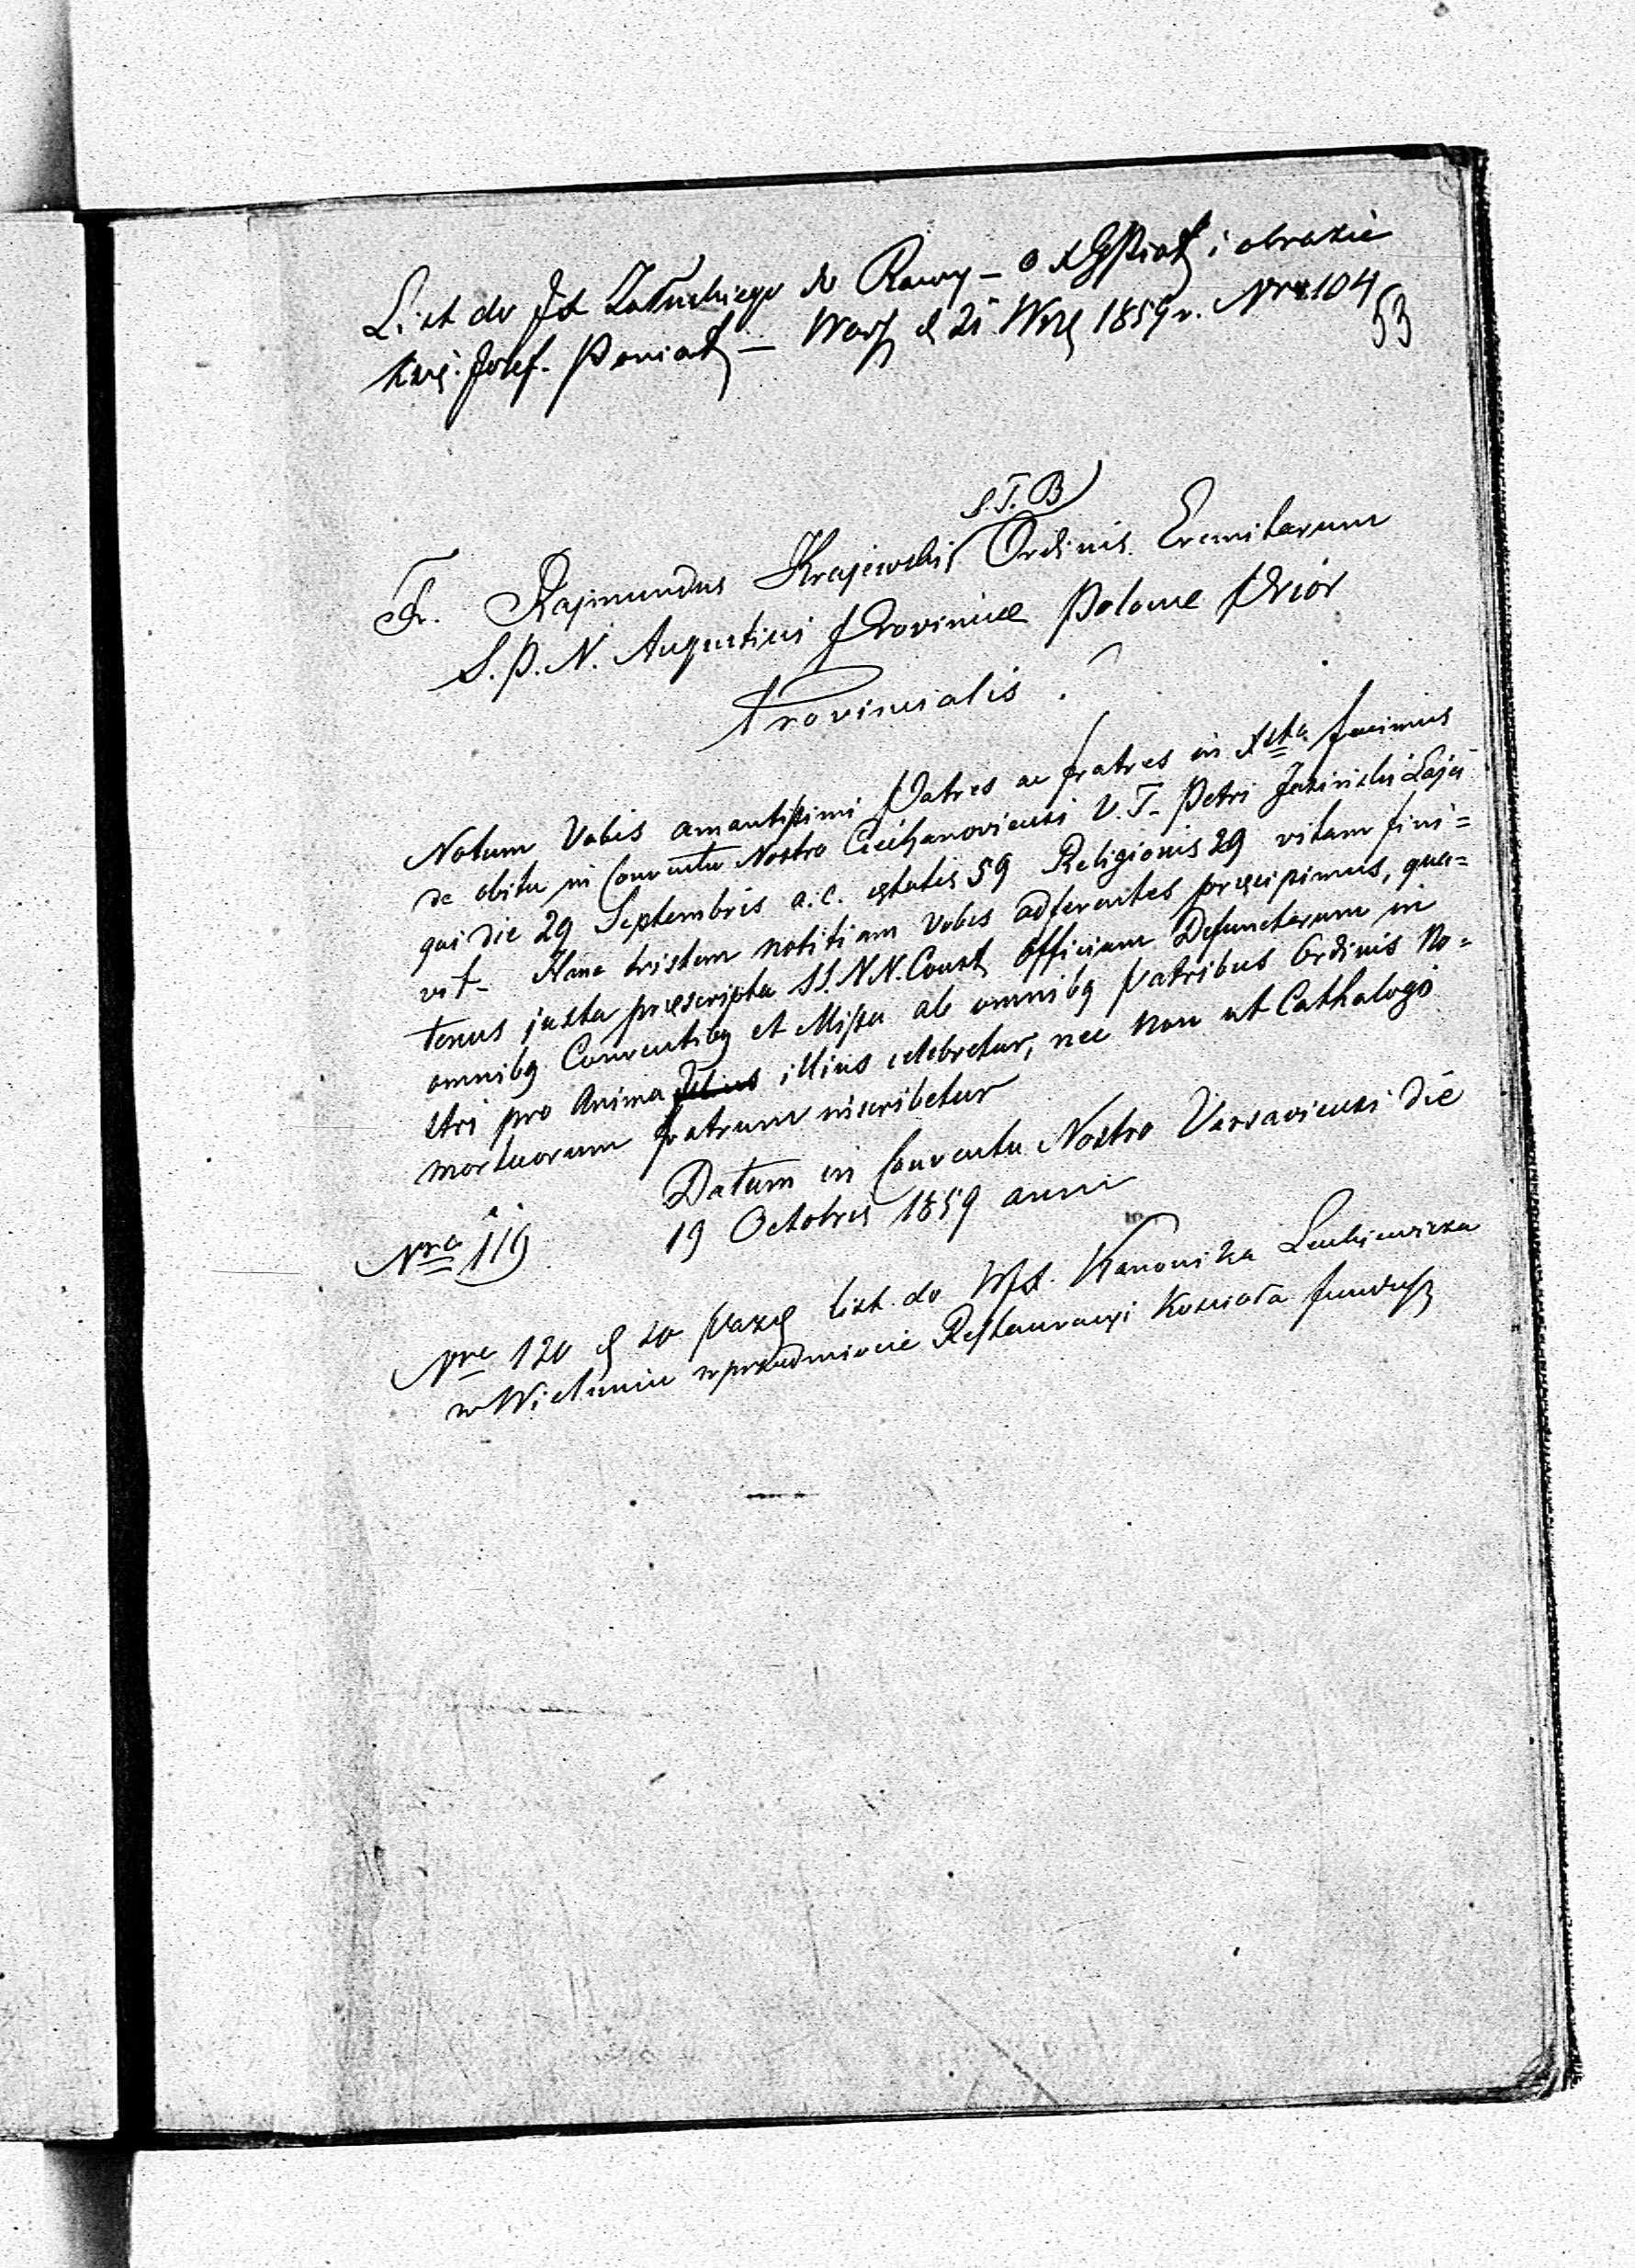 List do JX Załuskiego do Rawy — o i obrazie
Księ. Józef. Poniat — Warsz d 21 Wrz 1859 r. Nro 104
53
S.T.B
Fr. Rajmundus Krajewski Ordinis Eremitarum
S.P.N. Augustini Provinciæ Polonæ Prior
Provincialis.
Notum Vobis amantissimi Patres ac fratres in Xsto facimus
de obitu in Conventu Nostro Ciechanoviensi V.F. Petri Laici
qui die 29 Septembris a.c. ętatis 59 Religionis 29 vitam fini=
vit. Hanc tristem notitiam Vobis adferentes pręcipimus, qua=
tenus juxta pręscripta SS.NN.Const officium Defunctorum in
omnibq Conventibq et Missa ab omnibq Patribus Ordinis No=
stri pro Anima illius celebretur, nec non ut Cathalogo
mortuorum fratrum inscribetur
Datum in Conventu Nostro Varsaviensi die
19 Octobris 1859 anni
Nro 119
Nro 120 d 20 Pazdz list do WJX. Kanonika
w Wieluniu w przedmiocie Restauracyi Kościoła fundusz